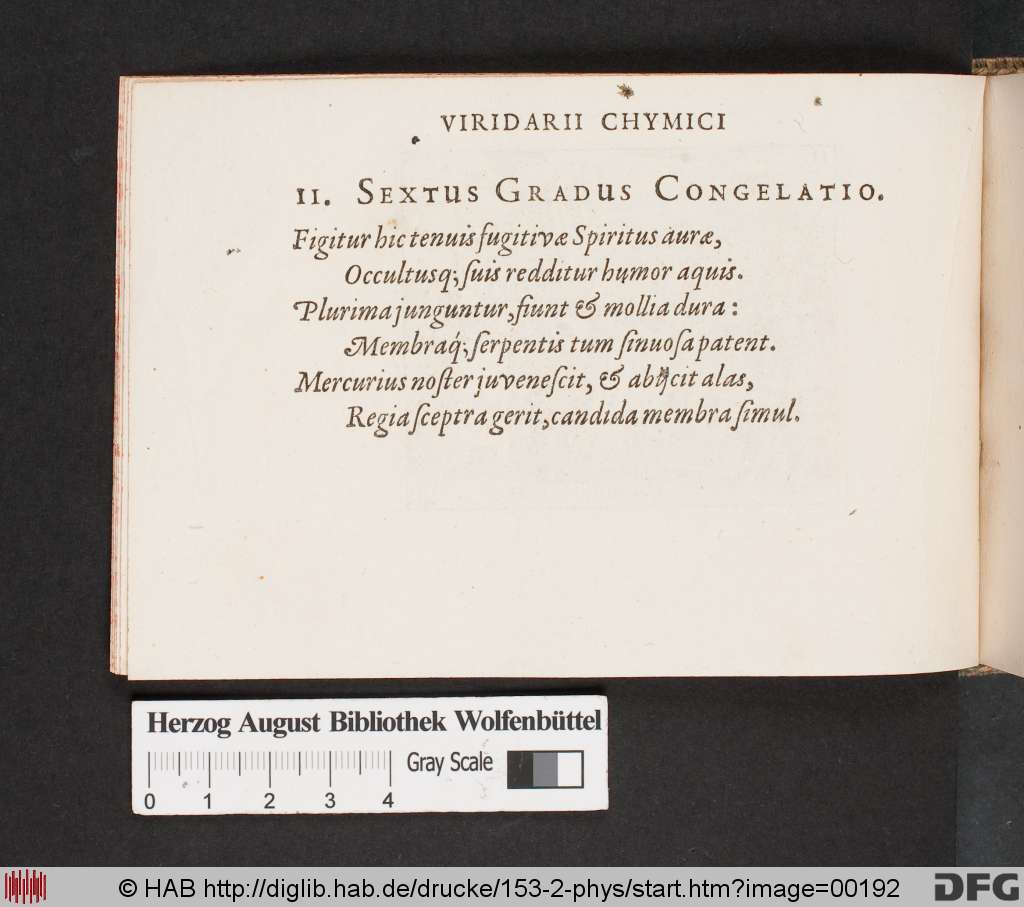 VIRIDARII CHYMICI
II. SEXTUS GRADUS CONGELATIO.
Figitur hic tenuis fugitivæ Spiritus auræ,
Occultusq; ſuis redditur humor aquis.
Plurima junguntur, fiunt & mollia dura:
Membraq́; ſerpentis tum ſinuoſa patent.
Mercurius noſter juveneſcit, & abijcit alas,
Regia ſceptra gerit, candida membra ſimul.
Herzog August Bibliothek Wolfenbüttel
Gray Scale
0 1 2 3 4
© HAB http://diglib.hab.de/drucke/153-2-phys/start.htm?image=00192
DFG